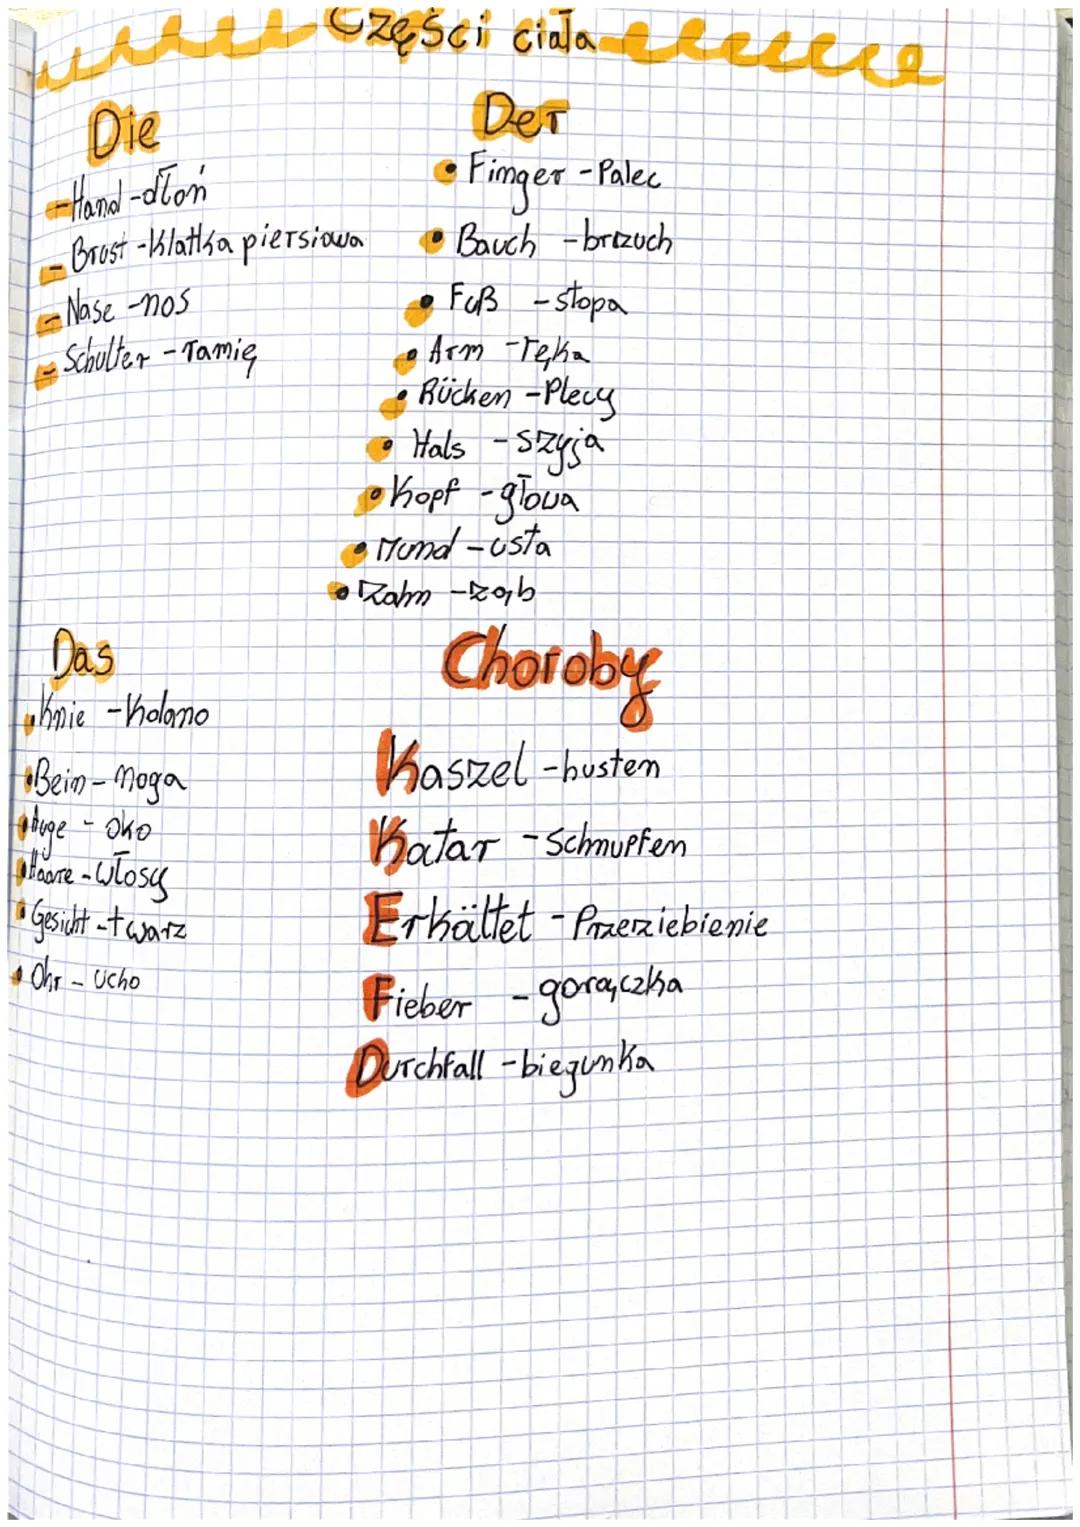 Części ciała
Die
- Hand - dłoń
- Brust - Klatka piersiowa
- Nase - nos
- Schulter - ramię
Der
• Finger - Palec
• Bauch - brzuch
• Fuß - stopa
• Arm - ręka
• Rücken - Plecy
• Hals - szyja
• Kopf - głowa
• Mund - usta
• Zahn - ząb
Das
• Knie - Kolano
• Bein - noga
• Auge - oko
• Haare - włosy
• Gesicht - twarz
• Ohr - ucho
Choroby
Kaszel - husten
Katar - Schnupfen
Erkältet - Przeziebienie
Fieber - gorączka
Durchfall - biegunka